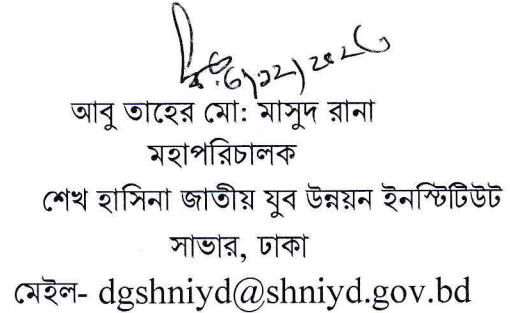 আবু তাহের মো: মাসুদ রানা
মহাপরিচালক
শেখ হাসিনা জাতীয় যুব উন্নয়ন ইনস্টিটিউট
সাভার, ঢাকা
মেইল- dgshniyd@shniyd.gov.bd